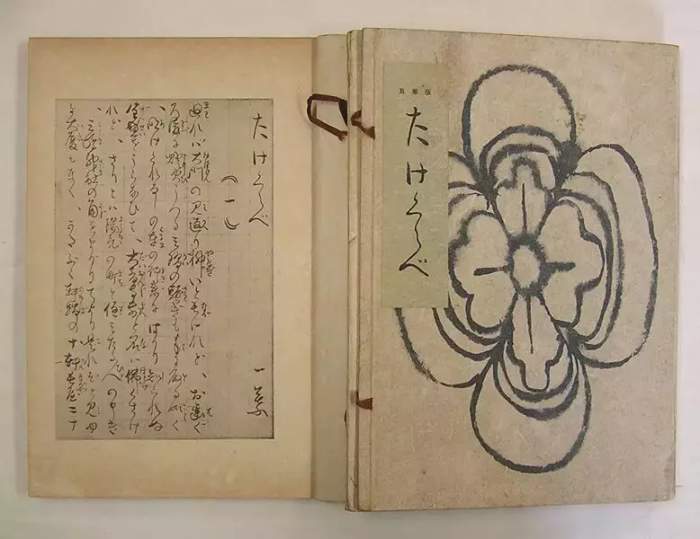 たけくらべ
たけくらべ
(一)
一葉
廻れば大門の見返り柳いと長けれど、お歯ぐ
ろ溝に燈火うつる三階の騒ぎも手に取る如く
、明けくれなしの車の行来にはかり知られぬ
全盛をうらなひて、大音寺前と名は佛くさけ
れど、さりとは陽気の町と住みたる人の申き
、三嶋神社の角をまがりてより是れぞと見ゆ
る大厦もなく、かたぶく軒端の十軒長屋二十